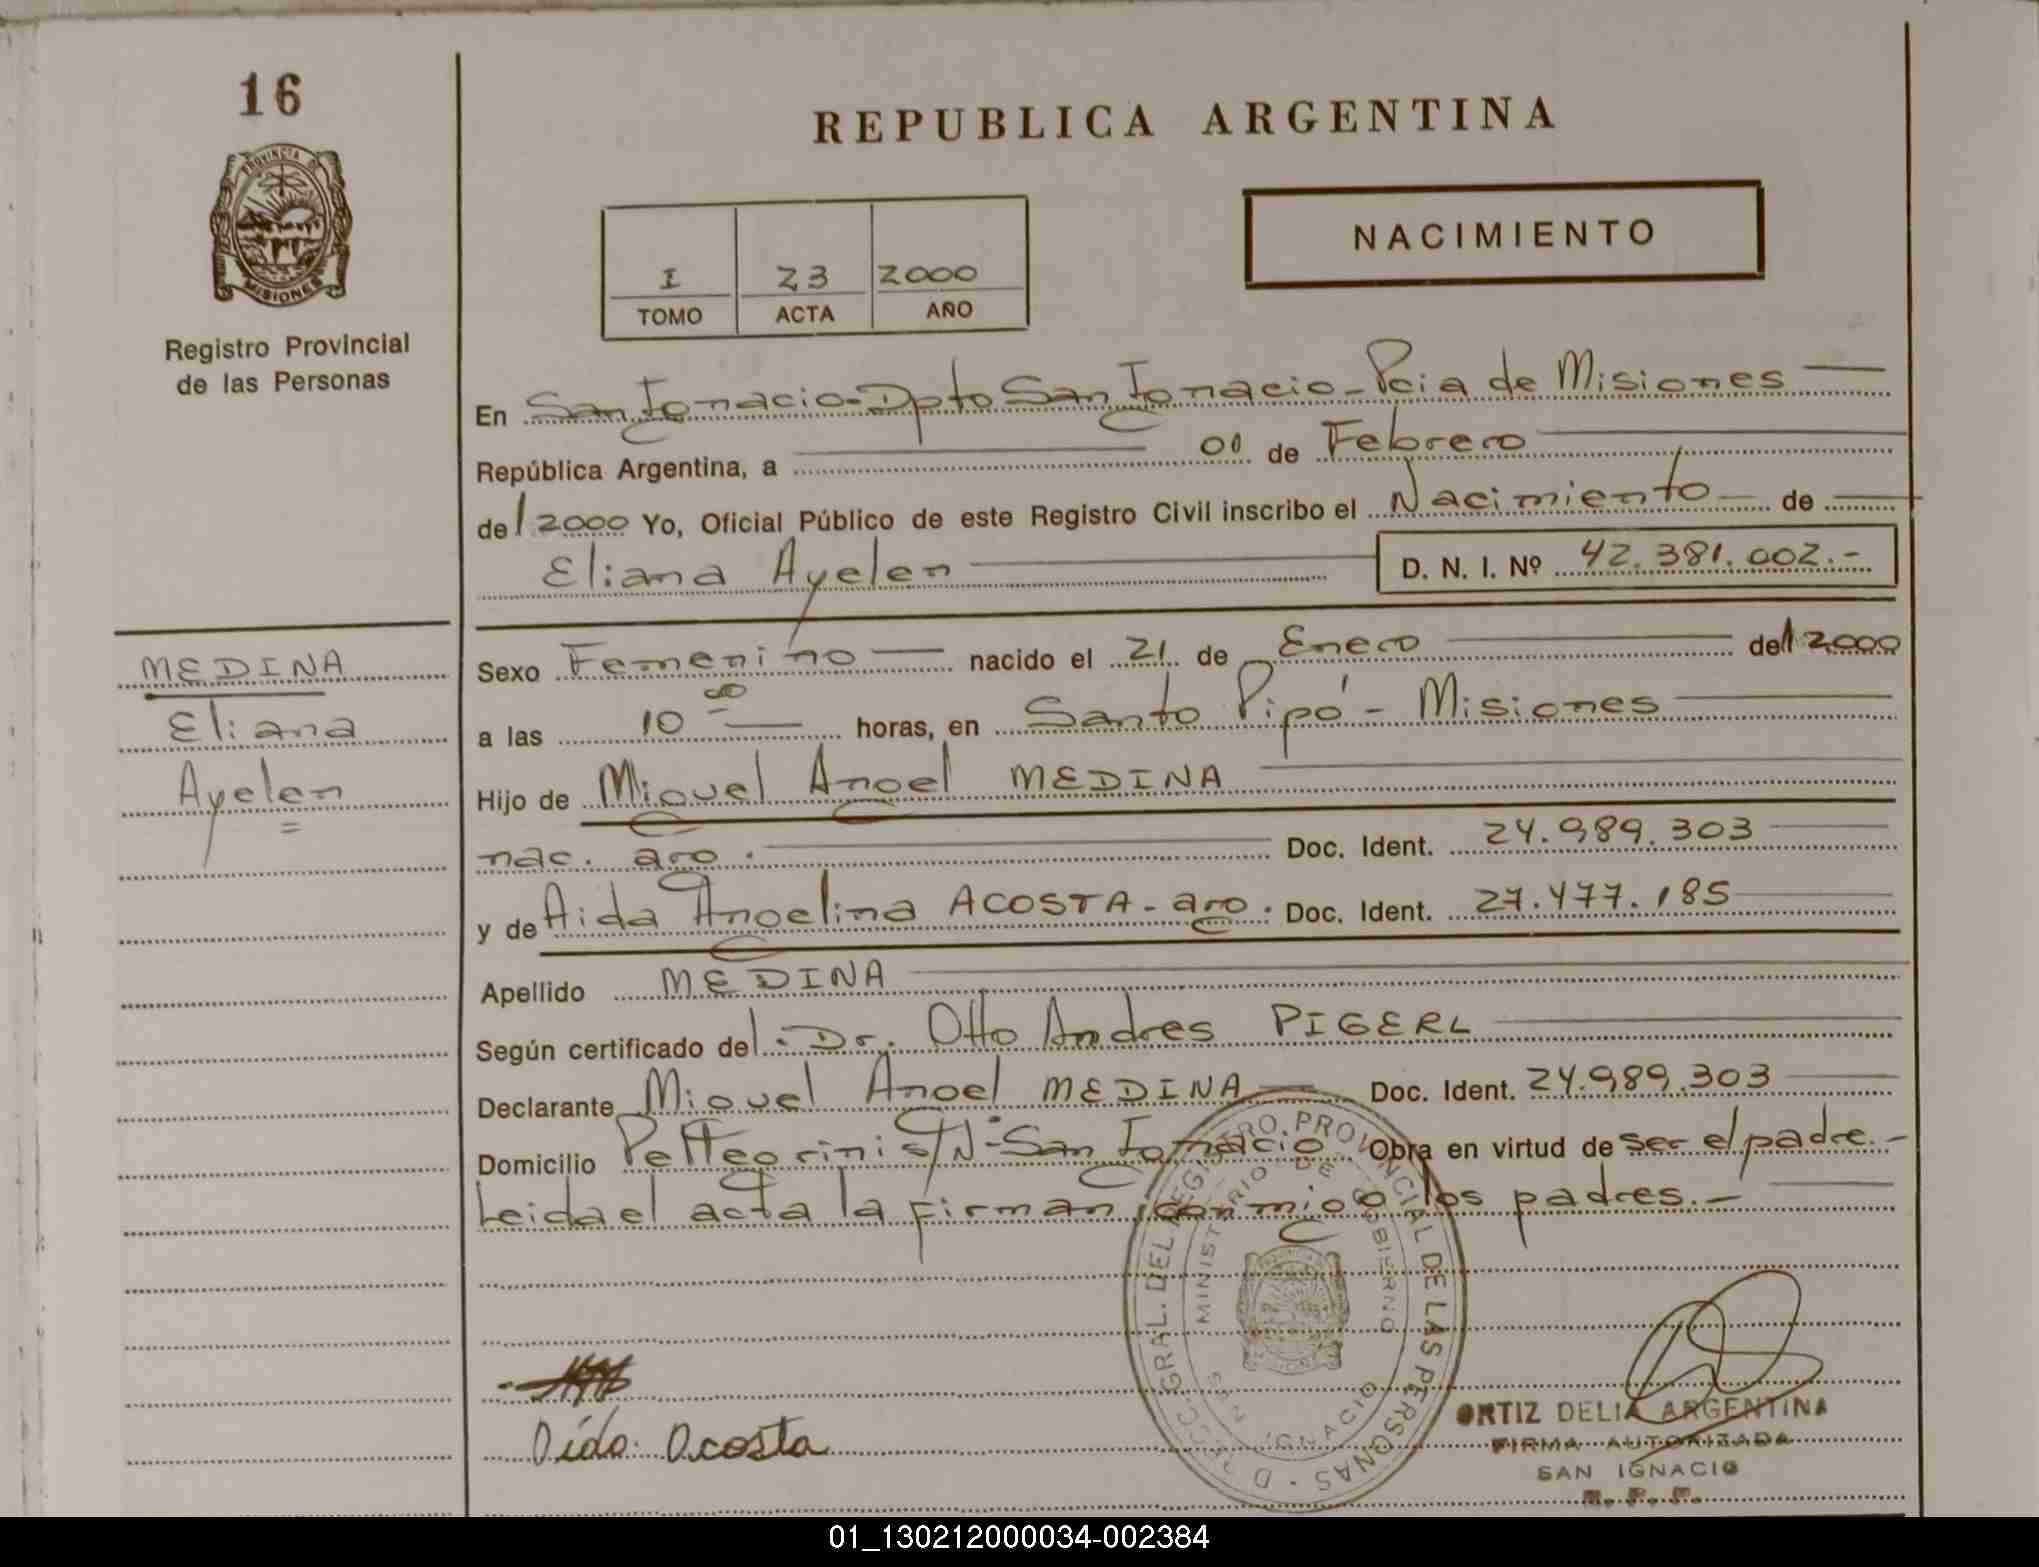 16
PROVINCIA DE
MISIONES
Registro Provincial
de las Personas
REPUBLICA ARGENTINA
I 23 2000
TOMO ACTA AÑO
NACIMIENTO
En San Ignacio-Dpto San Ignacio-Pcia de Misiones
República Argentina, a 01 de Febrero
del 2000 Yo, Oficial Público de este Registro Civil inscribo el Nacimiento de
Eliana Ayelen D. N. I. Nº 42.381.002.-
MEDINA
Eliana
Ayelen
Sexo Femenino nacido el 21 de Enero del 2000
a las 10 00 horas, en Santo Pipó - Misiones
Hijo de Miguel Angel MEDINA
nac. arg. Doc. Ident. 24.989.303
y de Aida Angelina ACOSTA - arg. Doc. Ident. 27.477.185
Apellido MEDINA
Según certificado del Dr. Otto Andres PIGERL
Declarante Miguel Angel MEDINA Doc. Ident. 24.989.303
Domicilio Pellegrini S/Nº-San Ignacio Obra en virtud de ser el padre.-
Leida el acta la firman conmigo los padres.-
GRAL. DEL REGISTRO PROVINCIAL DE LAS PERSONAS
MINISTERIO DE GOBIERNO
IGNACIO
Aida Acosta
ORTIZ DELIA ARGENTINA
FIRMA AUTORIZADA
SAN IGNACIO
R. P. P.
01_130212000034-002384